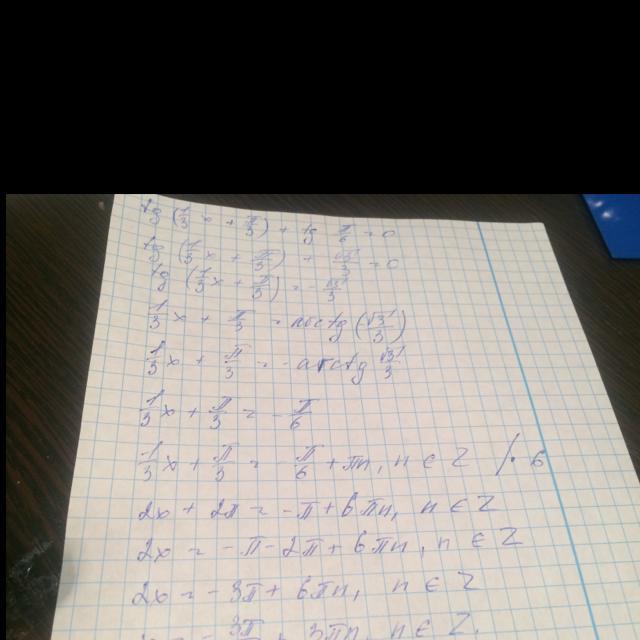 tg (1/3 x + π/3) + tg π/6 = 0
tg (1/3 x + π/3) + √3/3 = 0
tg (1/3 x + π/3) = -√3/3
1/3 x + π/3 = arctg (-√3/3)
1/3 x + π/3 = -arctg √3/3
1/3 x + π/3 = -π/6
1/3 x + π/3 = -π/6 + πn, n ∈ Z /·6
2x + 2π = -π + 6πn, n ∈ Z
2x = -π - 2π + 6πn, n ∈ Z
2x = -3π + 6πn, n ∈ Z
3π + 3πn, n ∈ Z